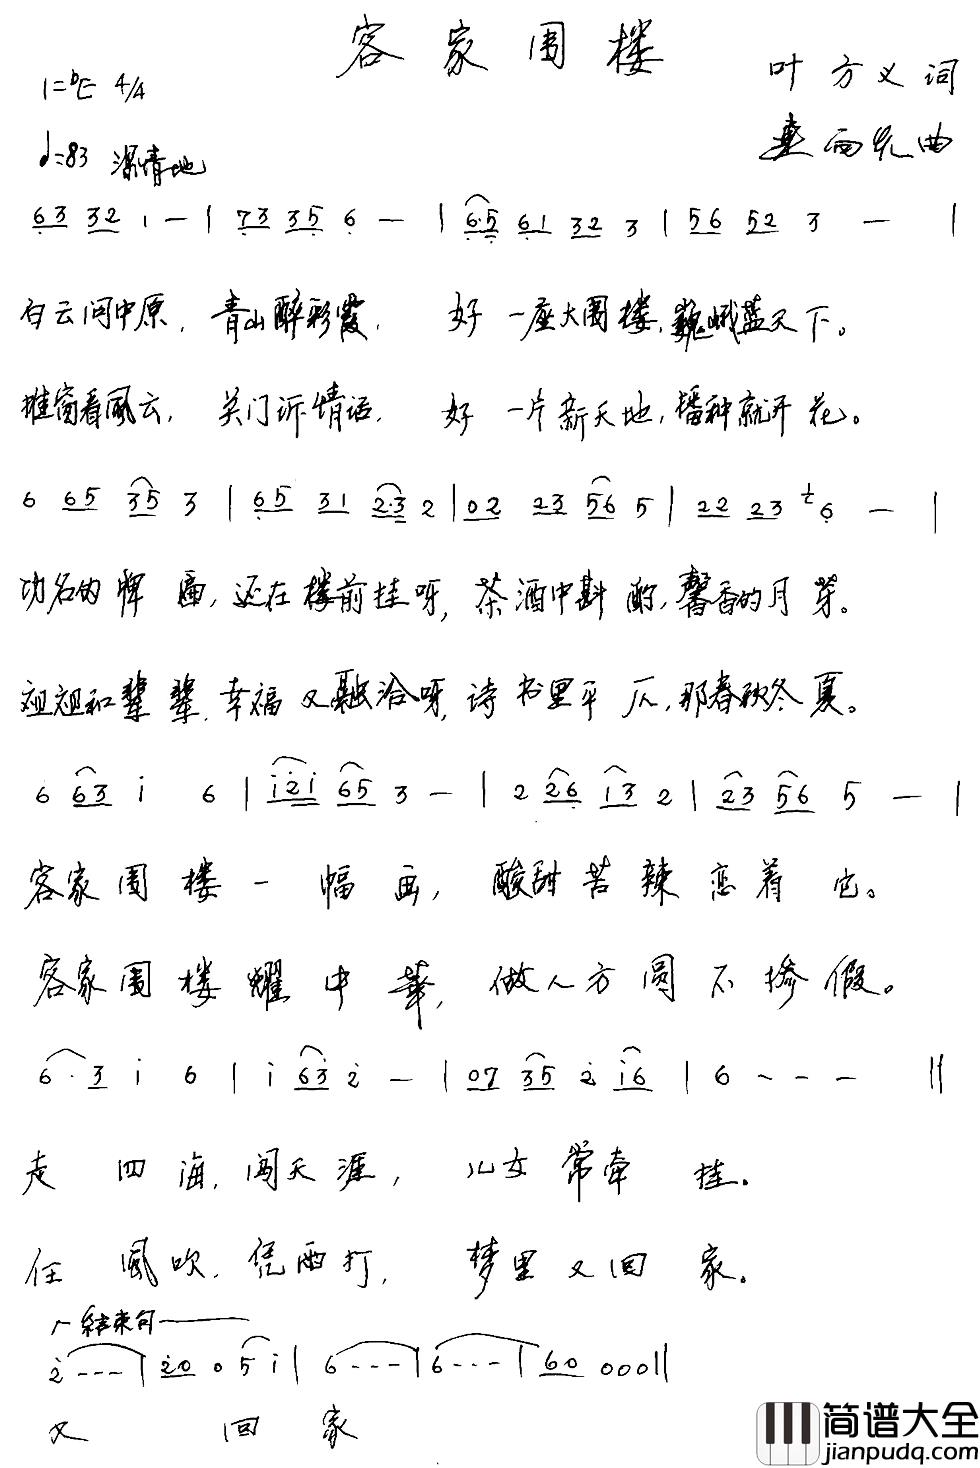 客家围楼
1=bE 4/4
叶方义词
♩=83 深情地
西先曲
63 32 1 — | 73 35 6 — | 6·5 61 32 3 | 56 52 3 — |
白云问中原，青山醉彩霞，好一座大围楼，巍峨蓝天下。
推窗看风云，关门诉情话，好一片新天地，播种就开花。
6 65 35 3 | 65 31 2·3 2 | 02 23 56 5 | 22 23 6 — |
功名的牌匾，还在楼前挂呀，茶酒中斟酌，馨香的月芽。
祖祖和辈辈，幸福又融洽呀，诗书里平仄，那春秋冬夏。
6 63 i 6 | i2i 65 3 — | 2 26 13 2 | 23 56 5 — |
客家围楼一幅画，酸甜苦辣恋着它。
客家围楼耀中華，做人方圆不掺假。
6·3 i 6 | i 63 2 — | 07 35 2 i6 | 6 - - - ‖
走四海，闯天涯，儿女常牵挂。
任风吹，凭雨打，梦里又回家。
结束句
2 - - - | 20 0 5 i | 6 - - - | 6 - - - | 60 000 ‖
又回家
简谱大全
jianpudq.com